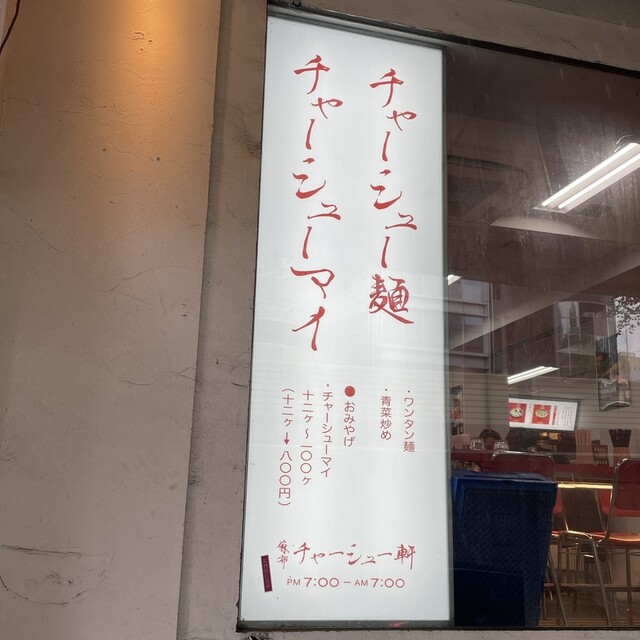 チャーシュー麺
チャーシューマイ
・ワンタン麺
・青菜炒め
●おみやげ
・チャーシューマイ
十二ヶ〜一〇〇ヶ
(十二ヶ→八〇〇円)
麻布 チャーシュー軒
PM 7:00 – AM 7:00